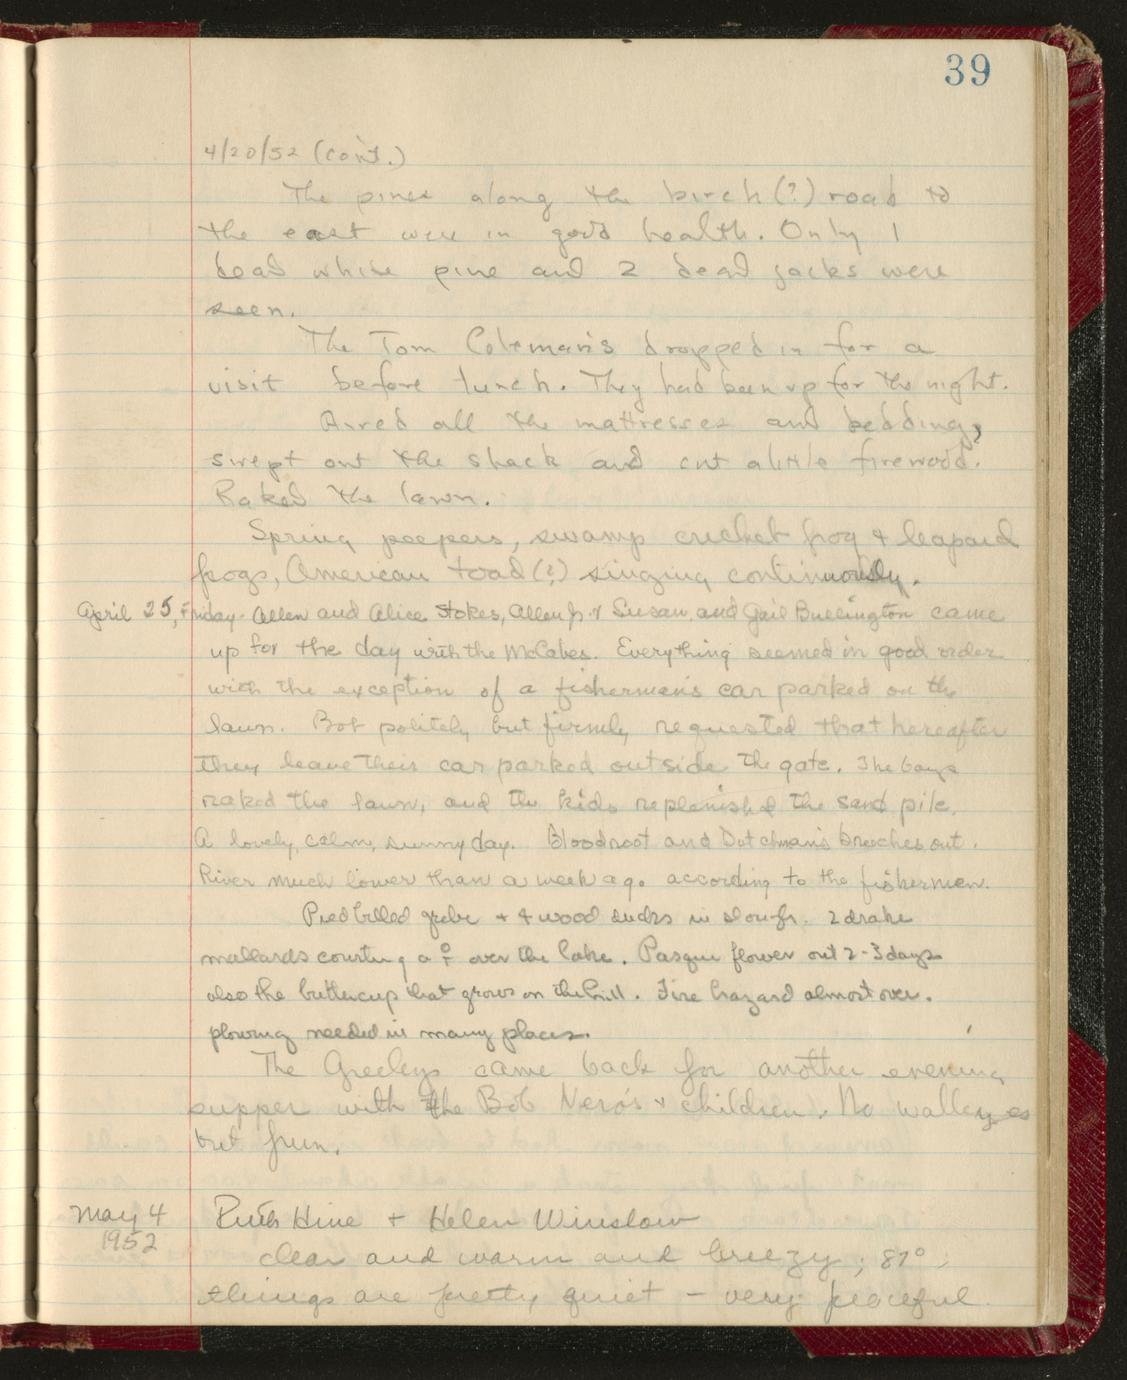 39
4/20/52 (cont.)
The pines along the birch (?) road to
the east were in good health. Only 1
dead white pine and 2 dead jacks were
seen.
The Tom Coleman's dropped in for a
visit before lunch. They had been up for the night.
Aired all the mattresses and bedding,
swept out the shack and cut a little firewood.
Raked the lawn.
Spring peepers, swamp cricket frog & leopard
frogs, American toad (?) singing continuously.
April 25, Friday - Allen and Alice Stokes, Allen Jr. & Susan, and Gail Bullington came
up for the day with the McCabes. Everything seemed in good order
with the exception of a fisherman's car parked on the
lawn. Bob politely but firmly requested that hereafter
they leave their car parked outside the gate. The boys
raked the lawn, and the kids replenished the sand pile.
A lovely, calm, sunny day. Bloodroot and Dutchman's breeches out.
River much lower than a week ago according to the fishermen.
Pied billed grebe + 4 wood ducks in slough. 2 drake
mallards courting a ♀ over the lake. Pasque flower out 2-3 days
also the buttercup that grows on the hill. Fire hazard almost over.
plowing needed in many places.
The Greeleys came back for another evening
supper with the Bob Nero's & children. No walleyes
but fun.
May 4 Ruth Hine + Helen Winslow
1952
clear and warm and breezy; 87°;
things are pretty quiet - very peaceful.